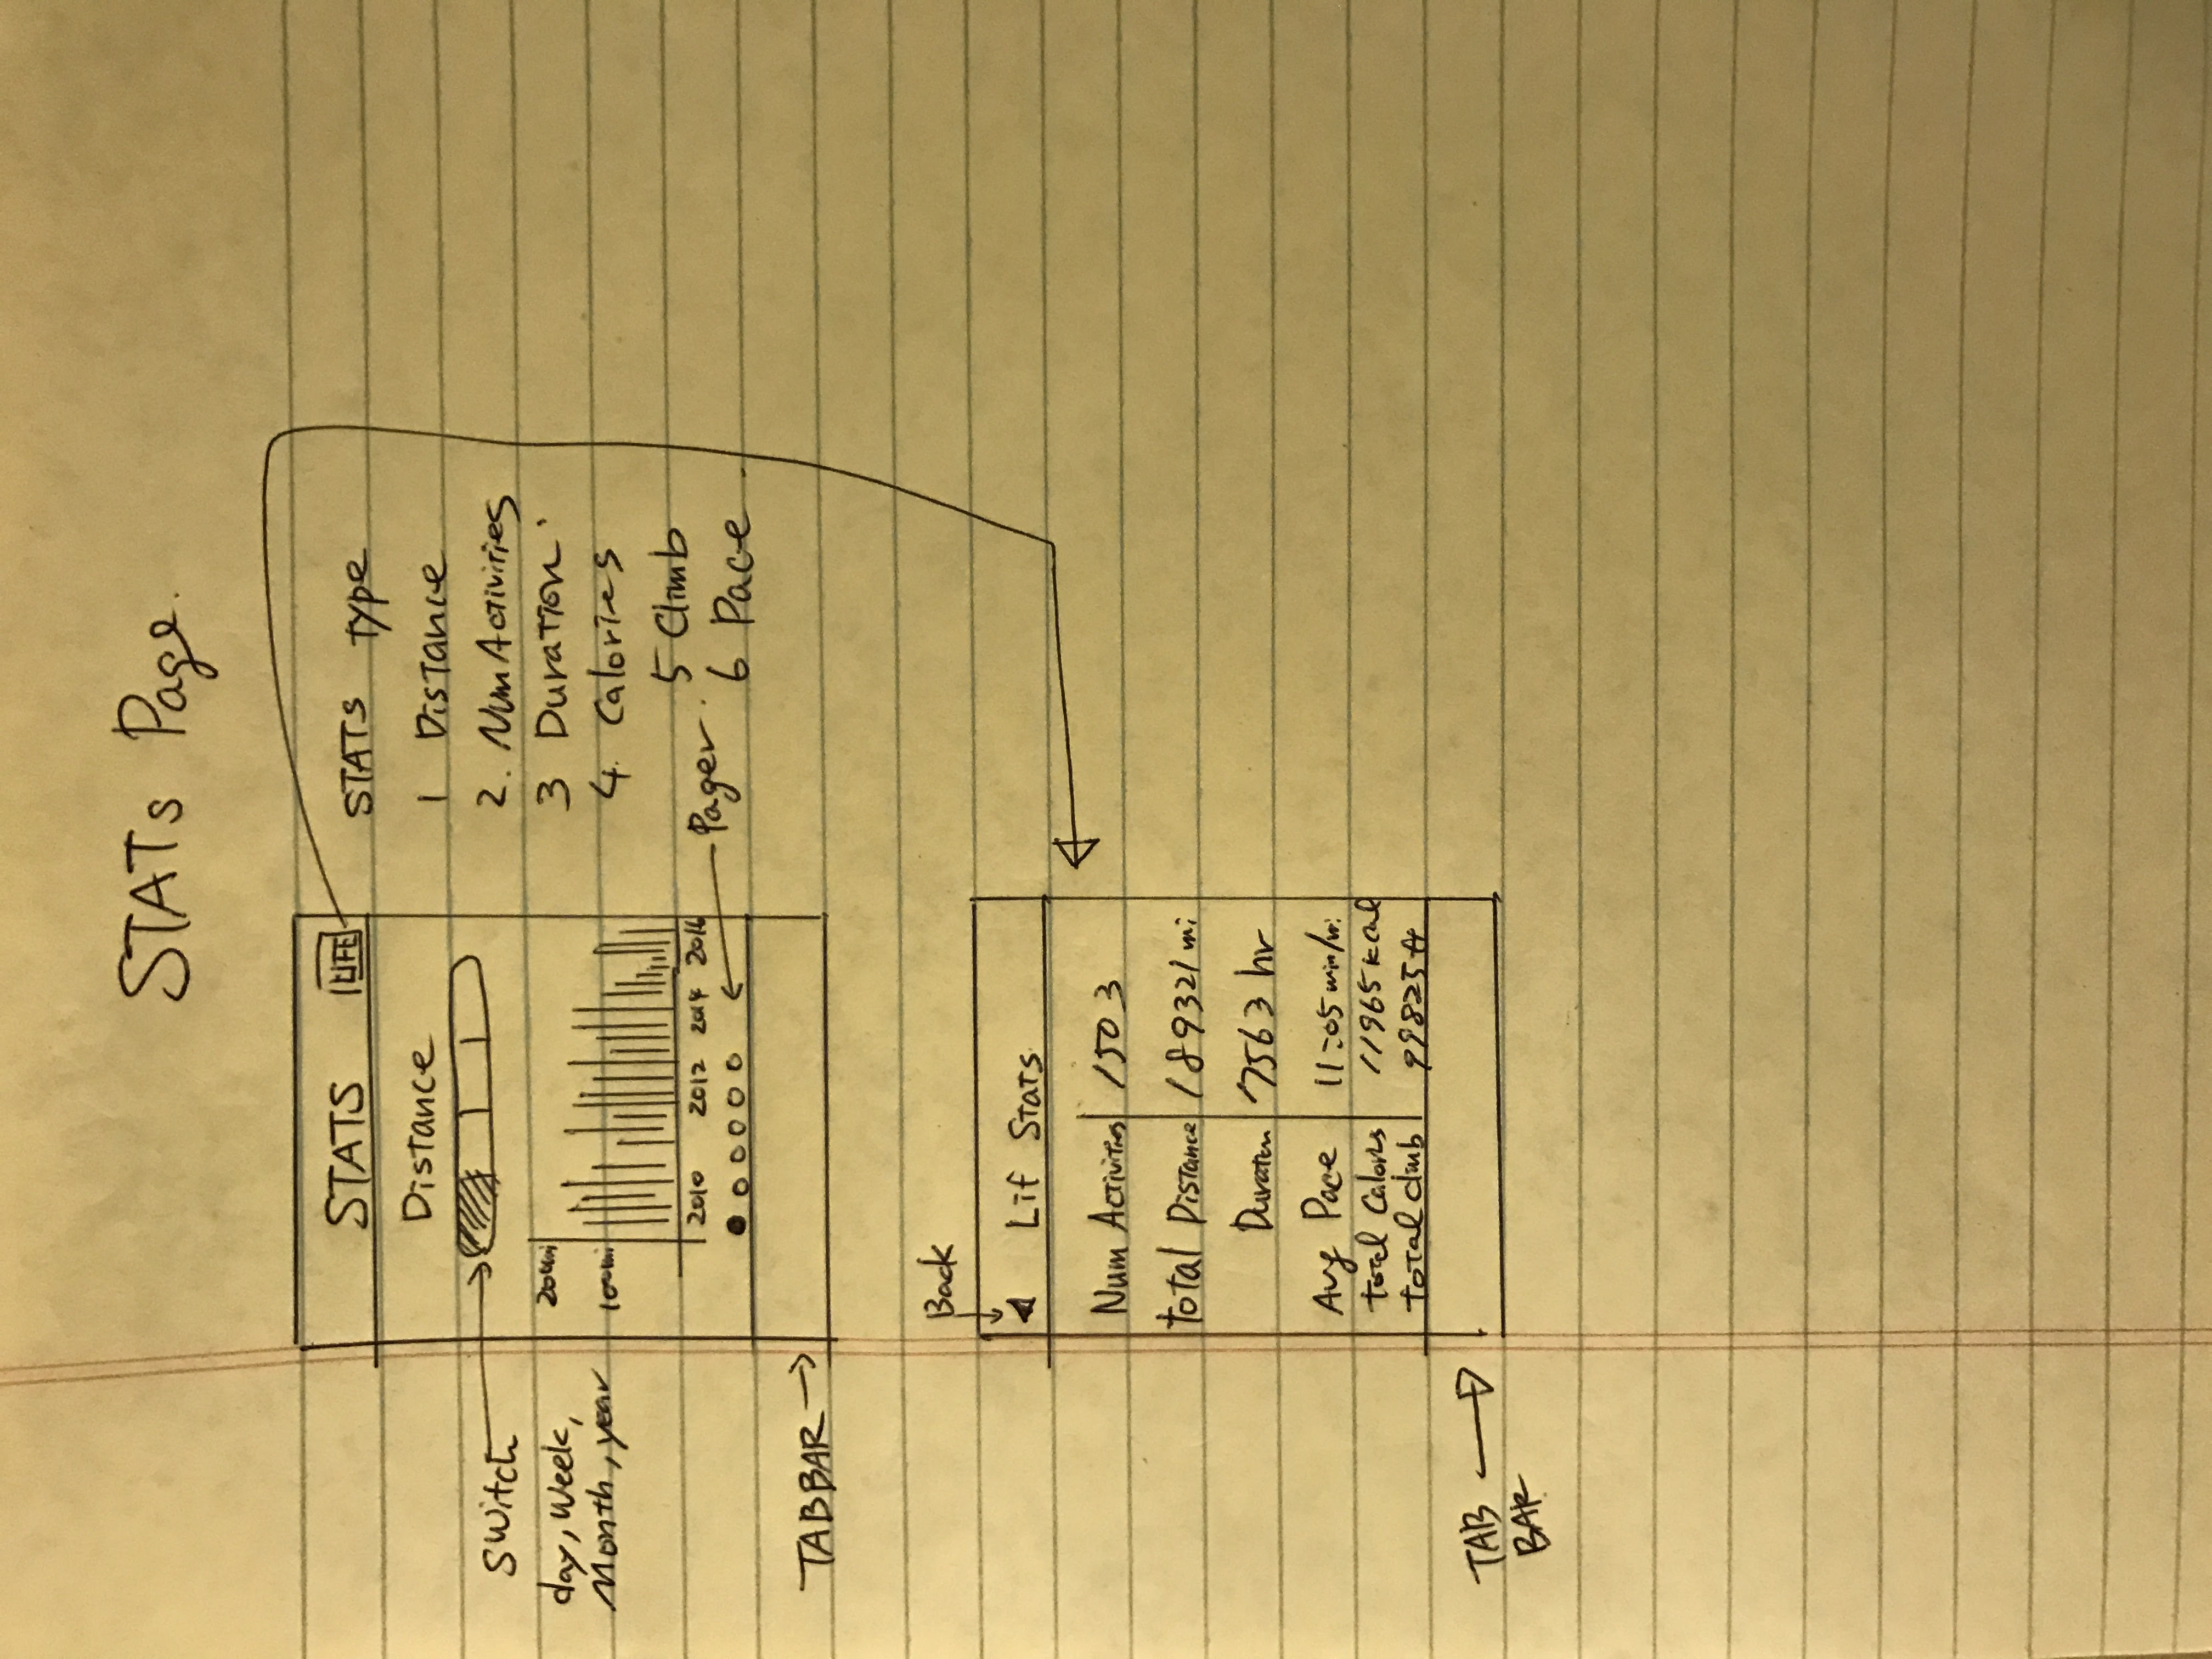 STATs Page.
STATS LIFE
Distance
Switch
day, Week,
Month, year
200mi
100mi
2010 2012 2014 2016
Pager
TABBAR
STATS Type
1 Distance
2. Num Activities
3 Duration
4. Calories
5 Climb
6 Pace
Back
Lif Stats
Num Activities 1503
Total Distance 189321 mi
Duration 7563 hr
Avg Pace 11:05 min/mi
total Calories 11965 kcal
total climb 99825 ft
TAB
BAR